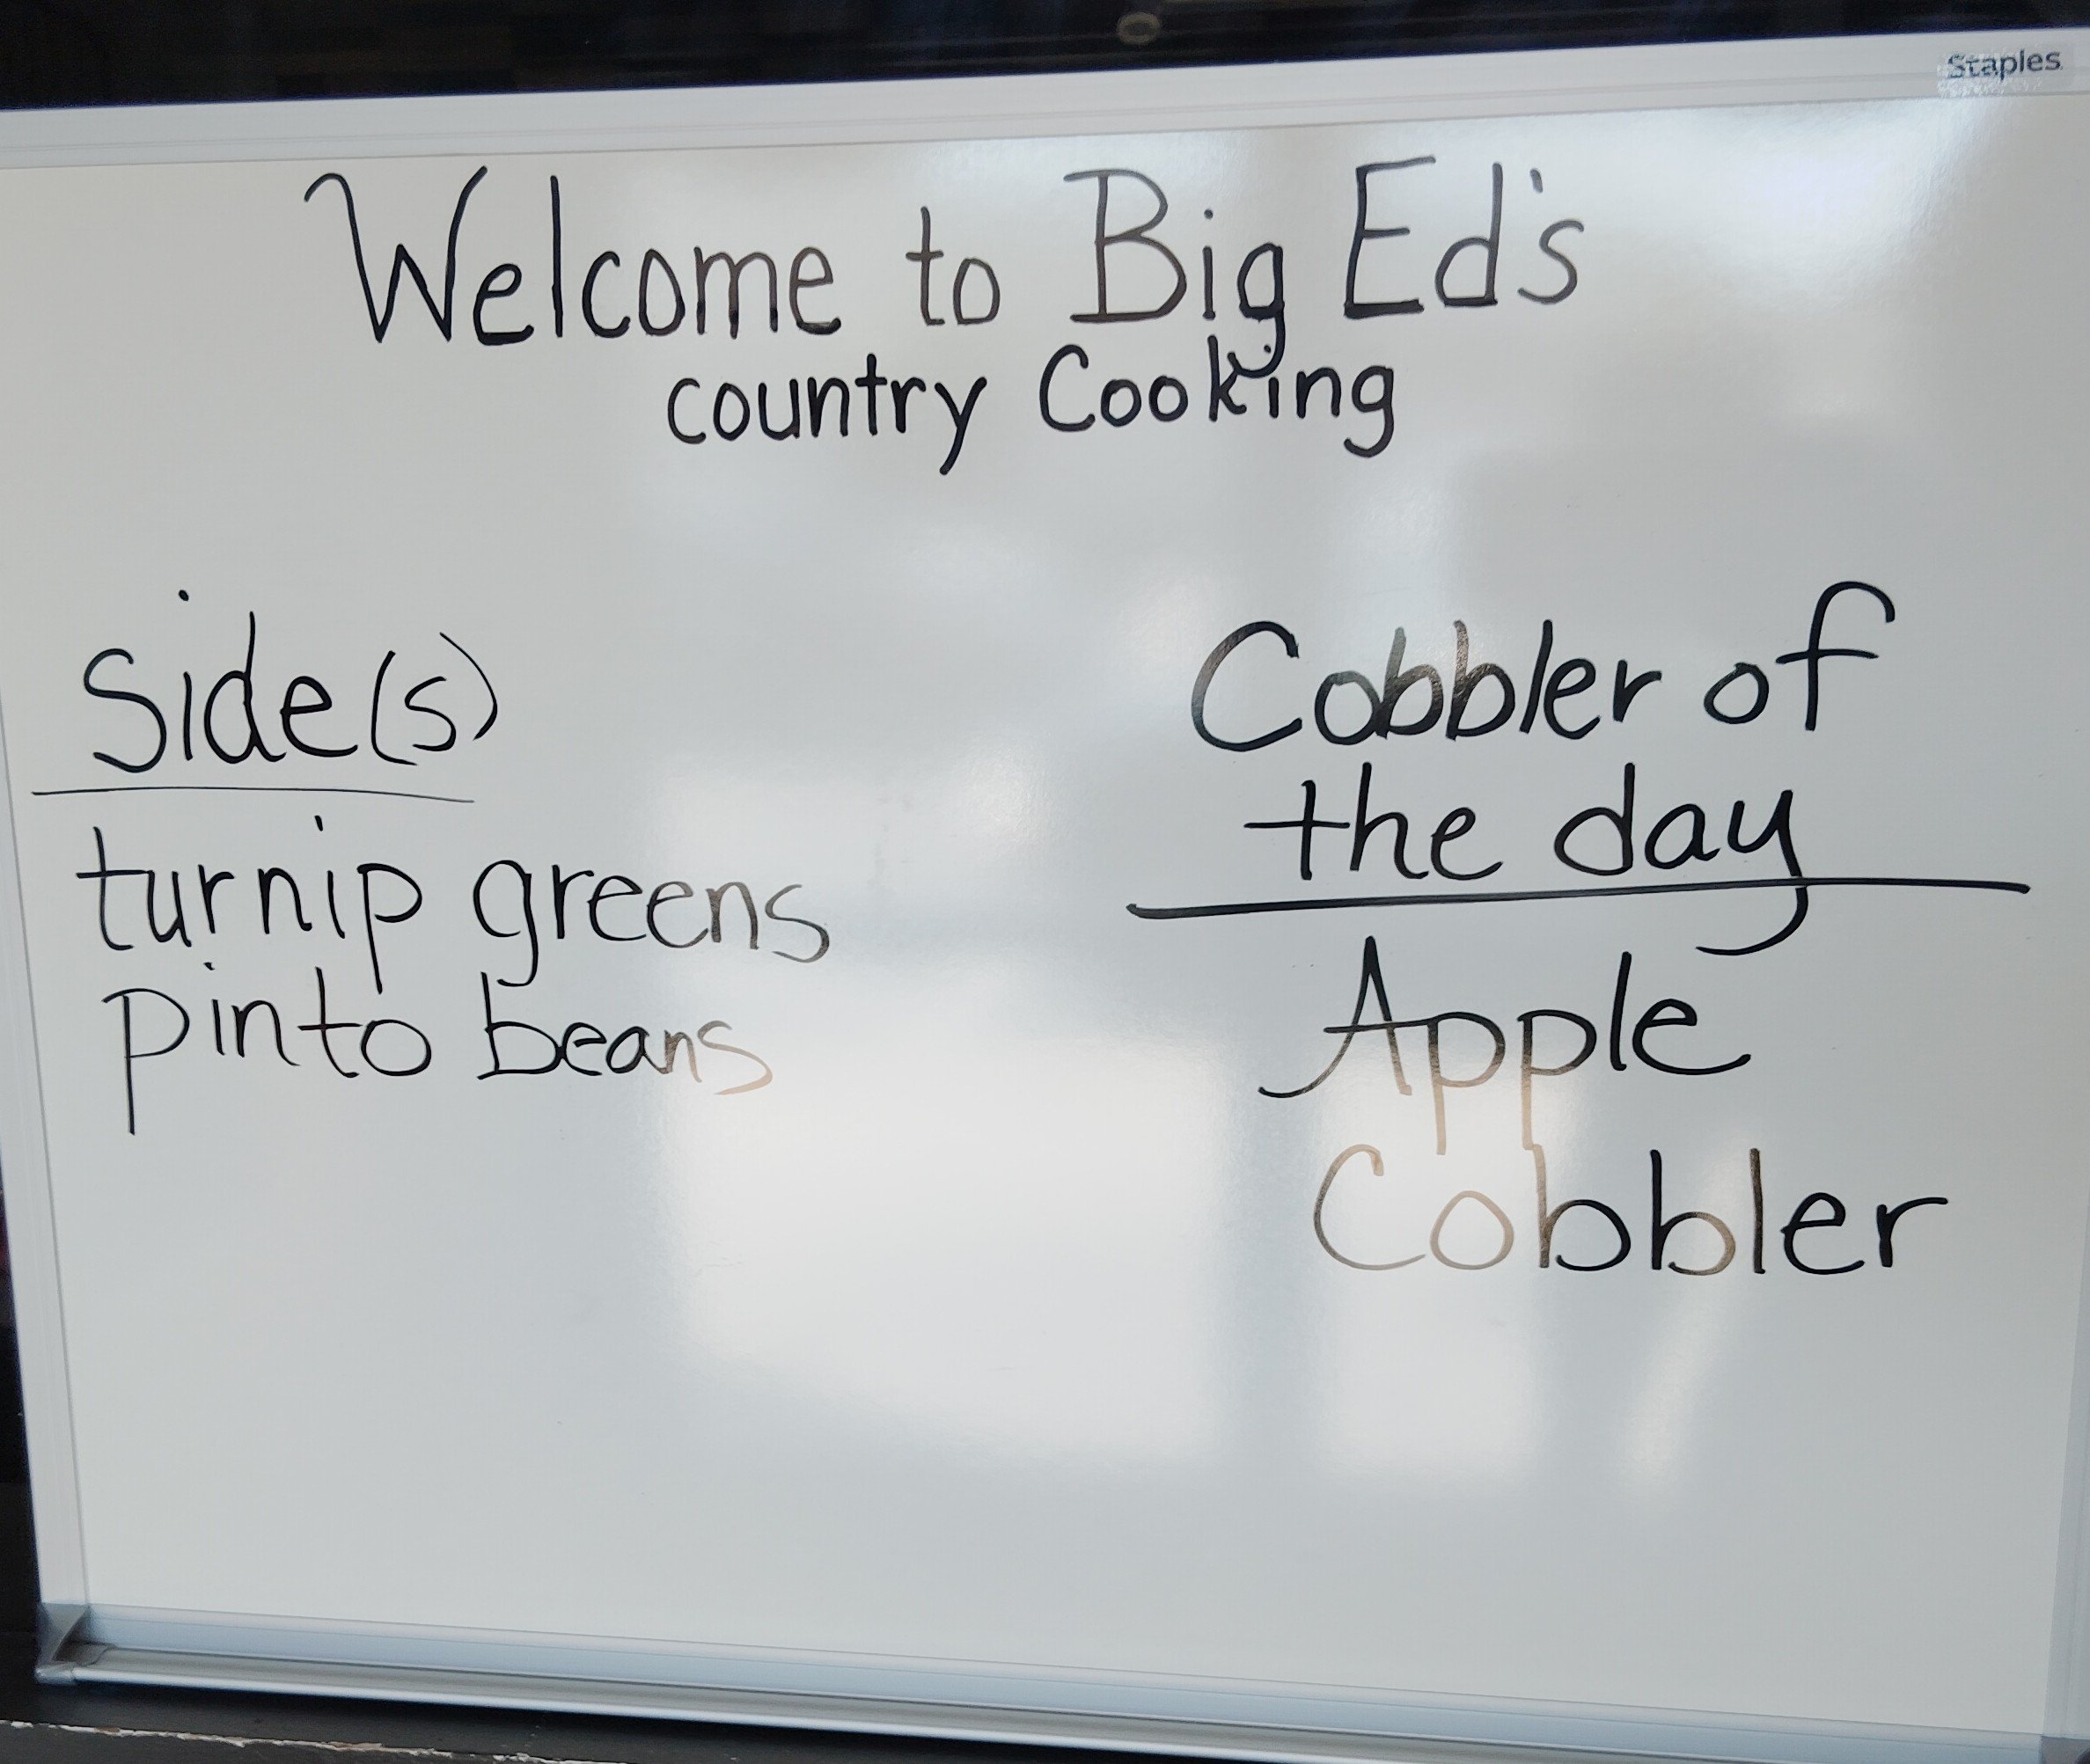 Staples
Welcome to Big Ed's
country Cooking
Side(s)
turnip greens
pinto beans
Cobbler of
the day
Apple
Cobbler